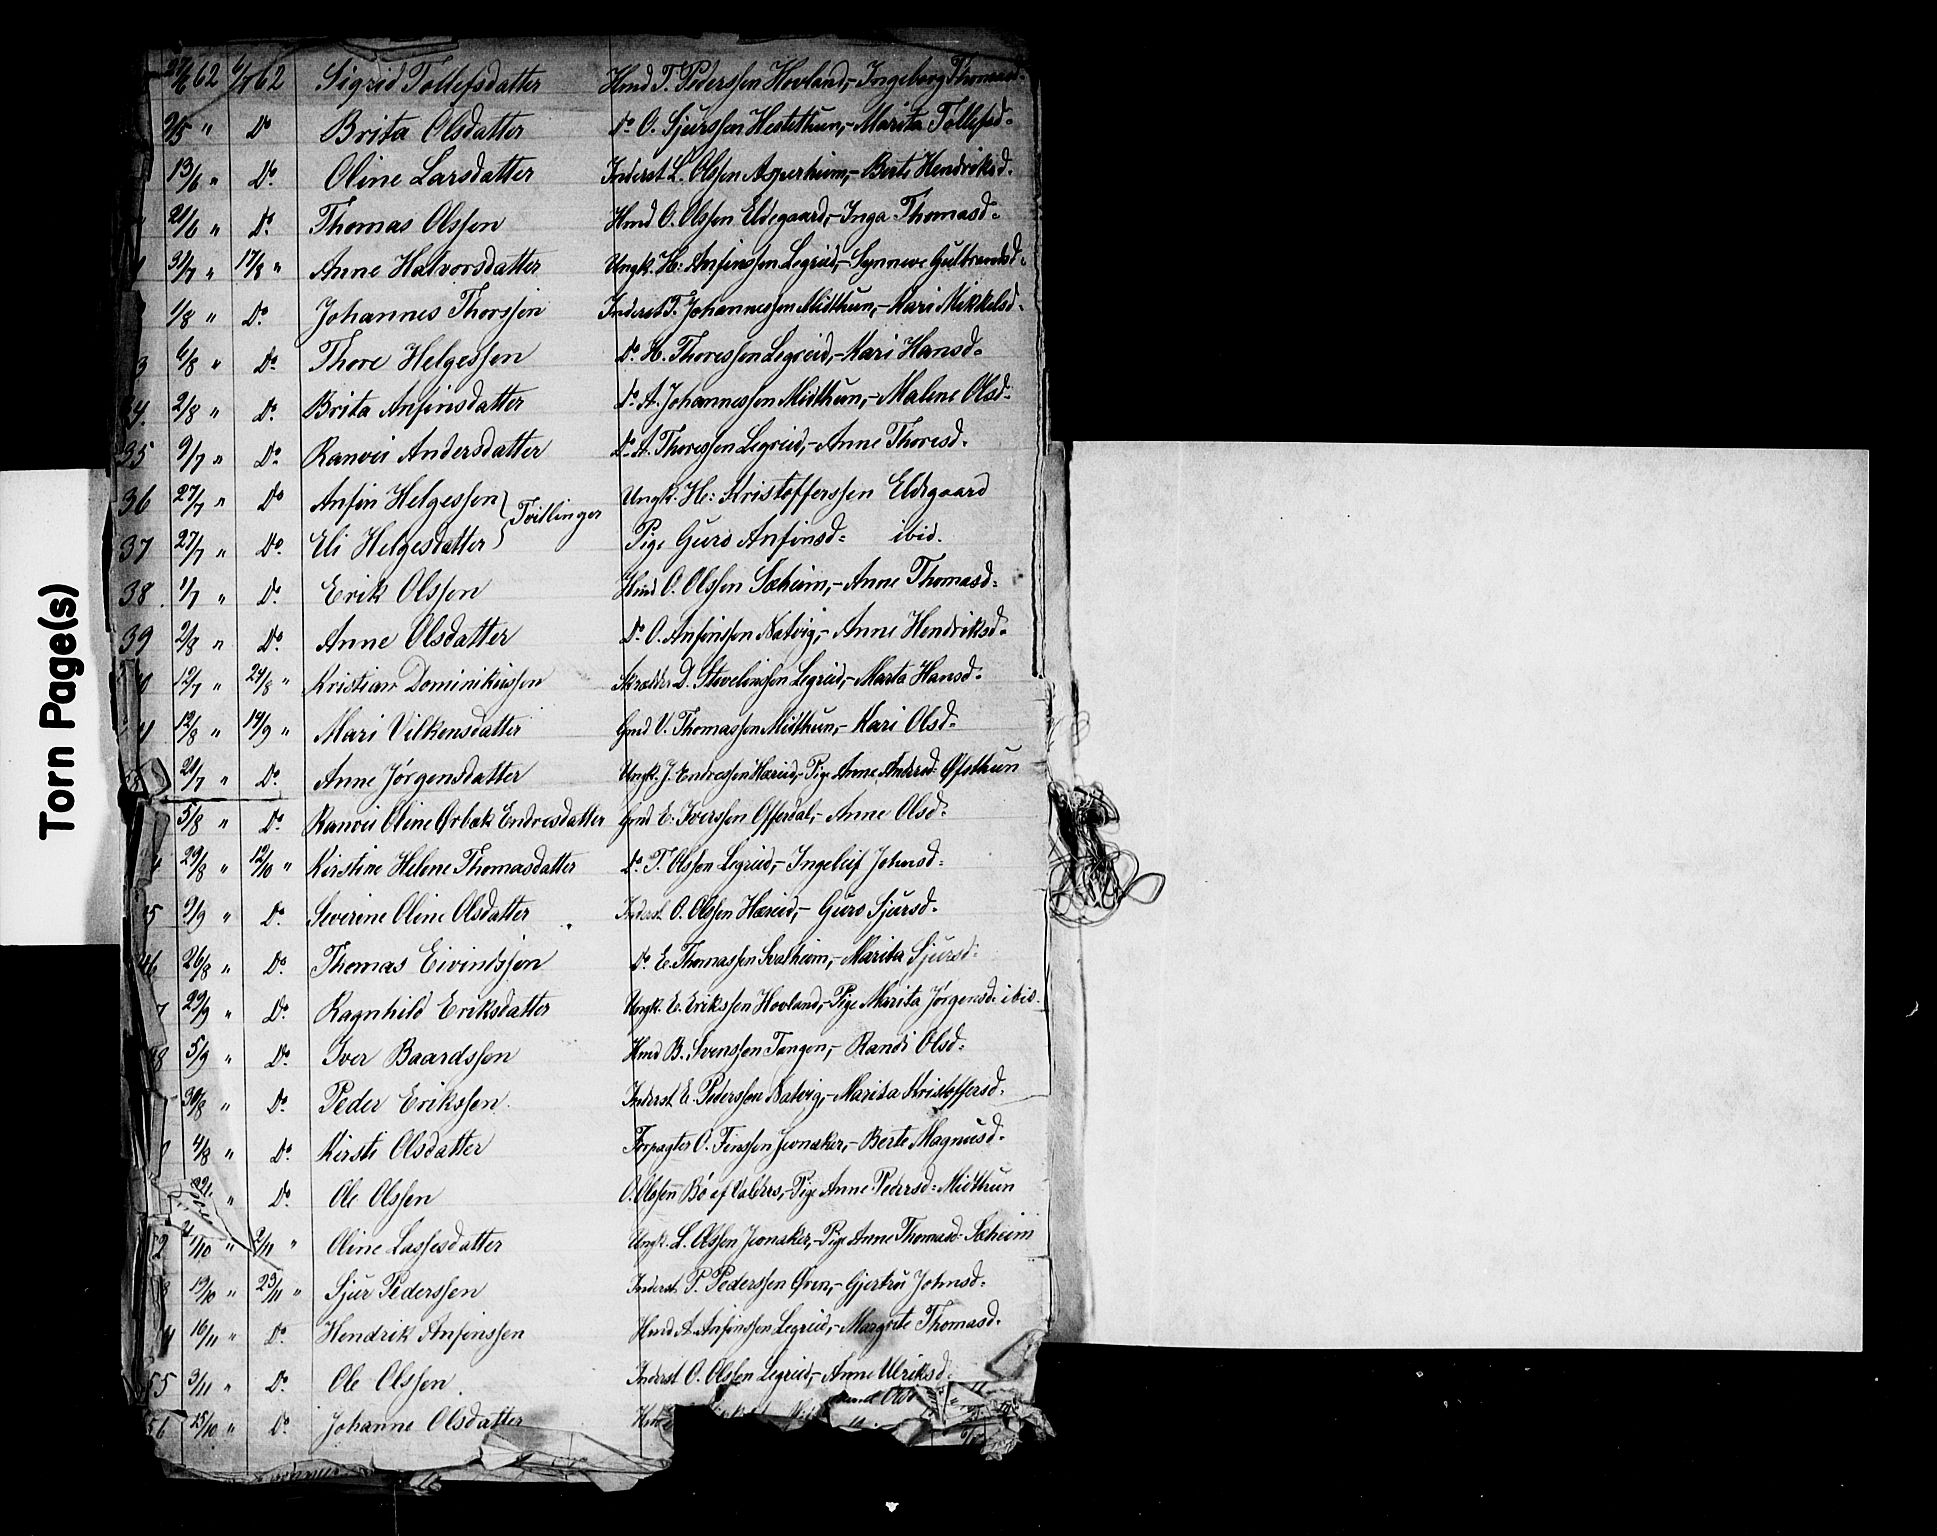 Torn Page(s)
62 6/7 62 Sigrid Tollefsdatter Hmd T. Pederssen Hovland,- Ingeborg Thomasd-
9/5 " Do Brita Olsdatter do O. Sjurssen Hestethun,- Marita Tollefsd-
13/6 " Do. Oline Larsdatter Inderst L. Olssen Asperheim,- Berte Hendriksd.
21/6 " Do. Thomas Olssen Hmd O. Olssen Eldegaard,- Inga Thomasd-
31/7 " 17/8 " Anne Halvorsdatter Ungk. H: Anfinssen Legreid,- Synneve Gulbrandsd-
1/8 " Do. Johannes Thorssen Inderst T. Johannessen Midthun,- Mari Mikkelsd-
3 6/8 " Do. Thore Helgessen Do. H. Thoressen Legreid,- Kari Hansd-
34. 2/8 " Do. Brita Anfinsdatter do. A. Johannessen Midthun,- Malene Olsd-
35 9/7 " Do. Ranvei Andersdatter Do. A. Thoressen Legreid,- Anne Thoresd-
36 27/7 " Do Anfin Helgessen } Tvillinger Ungk. H: Kristofferssen Eldegaard
37 27/7 " Do. Eli Helgesdatter Pige Guro Anfinsd- ibid.
38. 1/7 " Do. Erik Olssen Hmd O. Olssen Sæheim,- Anne Thomasd-
39 2/8 " Do. Anne Olsdatter Do. O. Anfinssen Natvig,- Anne Hendriksd-
12/7 " 24/8 " Kristian Dominikussen Skrædder D. Stevelinssen Legreid,- Marta Hansd-
12/8 " 14/9 " Mari Vilkensdatter Gmd V. Thomassen Midthun,- Kari Olsd-
21/7 " Do. Anne Jørgensdatter Ungk. J. Endressen Hæreid,- Pige Anne Andersd- Øfsthun
5/8 " Do. Ranvei Oline Ørbæk Endresdatter Gmd E. Iverssen Offerdal,- Anne Olsd-
29/8 " 12/10 " Kirstine Helene Thomasdatter Do. T. Olssen Legreid,- Ingeleif Johnsd-
5 9/9 " Do. Severine Oline Olsdatter Inderst O. Olssen Hæreid,- Guro Sjursd-
46 26/8 " Do. Thomas Eivindssen Do. E. Thomassen Svalheim,- Marita Sjursd-
7 29/9 " Do. Ragnhild Eriksdatter Ungk. E. Erikssen Hovland,- Pige Marita Jørgensd- ibid.
8 5/9 " Do. Iver Baardssen Hmd B. Svenssen Tangen,- Randi Olsd-
30/8 " Do. Peder Erikssen. Inderst E. Pederssen Natvig,- Marita Kristoffersd-
4/8 " Do. Kirsti Olsdatter Forpagter O. Finssen Jvonaker,- Berte Magnusd-
" Do. Ole Olssen O. Olssen Bö af Valders,- Pige Anne Pedersd- Midthun
2 1/10 " 2/11 " Oline Lassesdatter Ungk. L. Olssen Jvonaker,- Pige Anne Thomasd- Sæheim
3 19/10 " 23/11 " Sjur Pederssen Inderst P. Pederssen Øren,- Gjertru Johnsd-
4 16/11 " Do. Hendrik Anfinssen Hmd A. Anfinssen Legreid,- Margrete Thomasd-
55 3/11 " Do. Ole Olssen. Inderst O. Olssen Legreid,- Anne Ulriksd-
56 15/10 " Do. Johanne Olsdatter Hmd